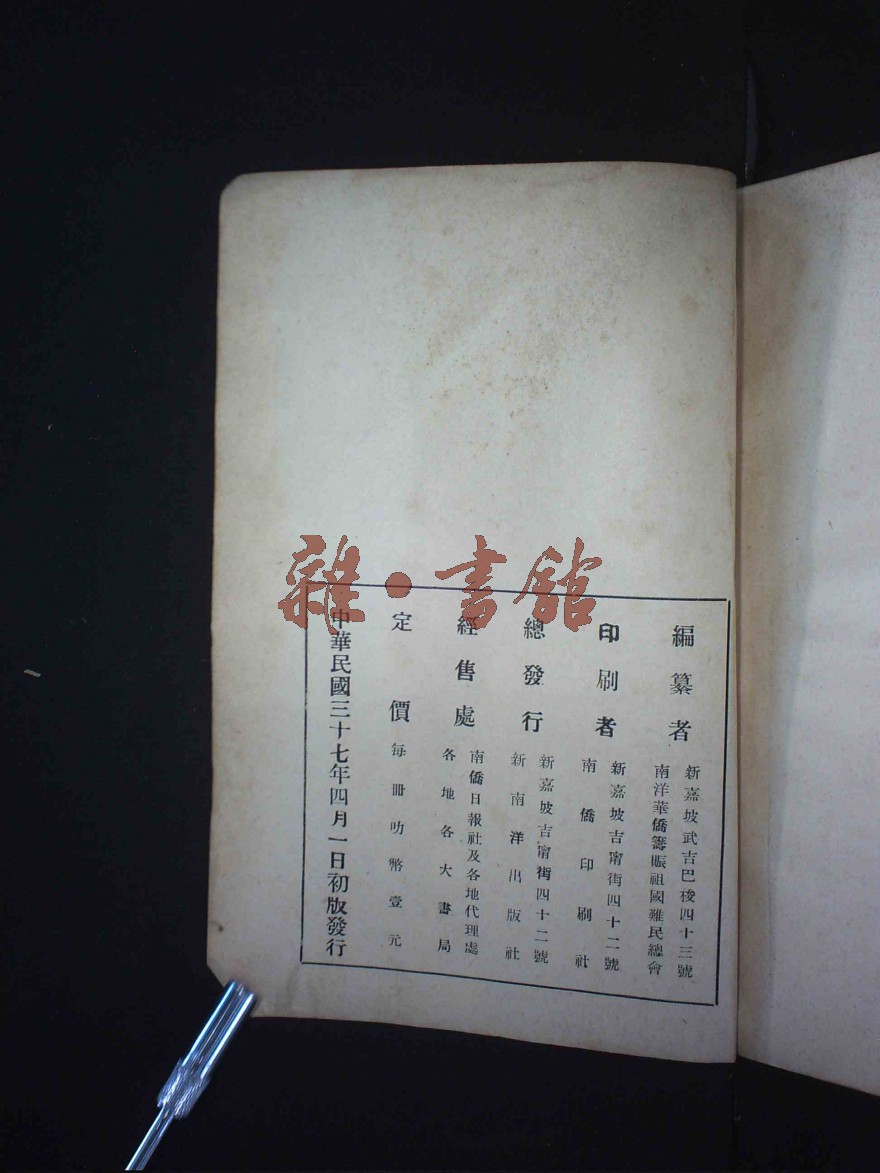 雜·書館
編纂者
新嘉坡武吉巴梭四十三號
南洋華僑籌賑祖國難民總會
印刷者
新嘉坡吉甯街四十二號
南僑印刷社
總發行
新嘉坡吉甯街四十二號
新南洋出版社
經售處
南僑日報社及各地代理處
各地各大書局
定價
每冊叻幣壹元
中華民國三十七年四月一日初版發行